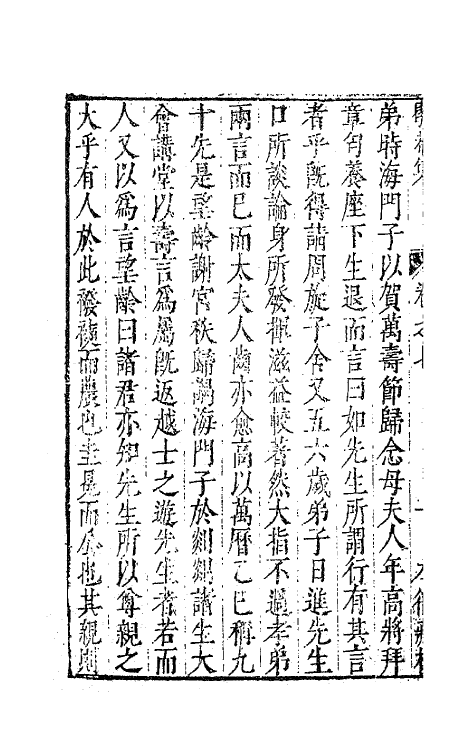 歇菴集 卷之七
弟時海門子以賀萬壽節歸念母夫人年高將拜
章匄養座下生退而言曰如先生所謂行有其言
者乎旣得請周旋子舍又五六歲弟子日進先生
口所談論身所發揮滋益較著然大指不過孝弟
兩言而已而太夫人齒亦愈高以萬曆乙巳稱九
十先是望齡謝官秩歸謁海門子於剡剡諸生大
會講堂以壽言爲屬旣返越士之遊先生者若而
人又以爲言望齡曰諸君亦知先生所以尊親之
大乎有人於此襏襫而農也圭冕而公也其親則